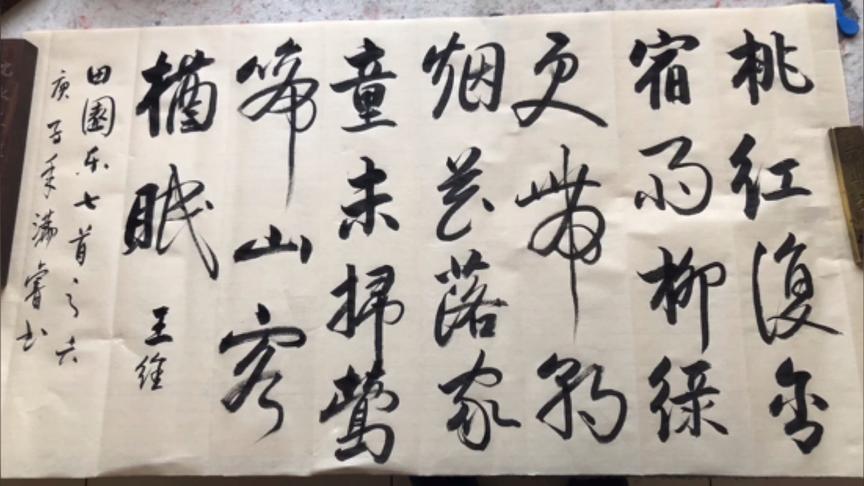 桃红復含
宿雨柳绿
更帶朝
烟花落家
童未掃鶯
啼山客
猶眠 王维
田園乐七首之六
庚子年满睿书